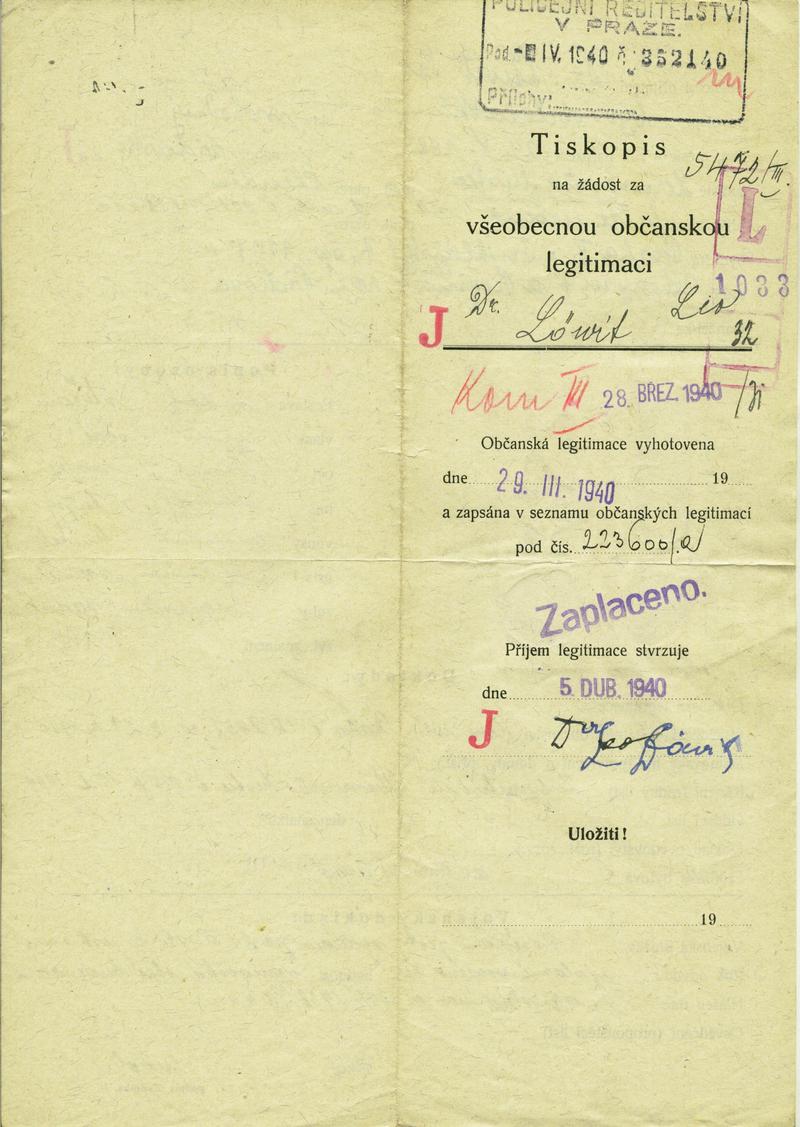 POLICEJNÍ ŘEDITELSTVÍ
V PRAZE.
Pod. IV. 1940 č. 352140
Přílohy:
Tiskopis
5472/III.
na žádost za
všeobecnou občanskou
L
legitimaci
1033
J Dr. Löwit Leo
32
Kom III 28. BŘEZ. 1940
Občanská legitimace vyhotovena
dne 29. III. 1940 19
a zapsána v seznamu občanských legitimací
pod čís. 223600/
Zaplaceno.
Příjem legitimace stvrzuje
dne 5. DUB. 1940
J Dr Leo Löwit
Uložiti!
19